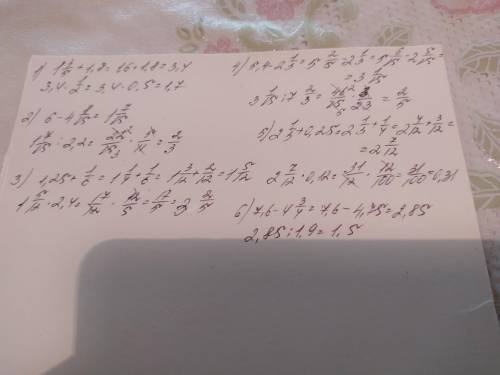 1) 1 3/5 + 1,8 = 1,6 + 1,8 = 3,4
3,4 · 1/2 = 3,4 · 0,5 = 1,7
2) 6 - 4 8/15 = 1 7/15
1 7/15 : 2,2 = 22/15 · 5/11 = 2/3
3) 1,25 + 1/6 = 1 1/4 + 1/6 = 1 3/12 + 2/12 = 1 5/12
1 5/12 · 2,4 = 17/12 · 12/5 = 17/5 = 3 2/5
4) 5,4 - 2 1/3 = 5 2/5 - 2 1/3 = 5 6/15 - 2 5/15 =
= 3 1/15
3 1/15 : 7 2/3 = 46/15 · 3/23 = 2/5
5) 2 1/3 + 0,25 = 2 1/3 + 1/4 = 2 4/12 + 3/12 =
= 2 7/12
2 7/12 · 0,12 = 31/12 · 12/100 = 31/100 = 0,31
6) 7,6 - 4 3/4 = 7,6 - 4,75 = 2,85
2,85 : 1,9 = 1,5